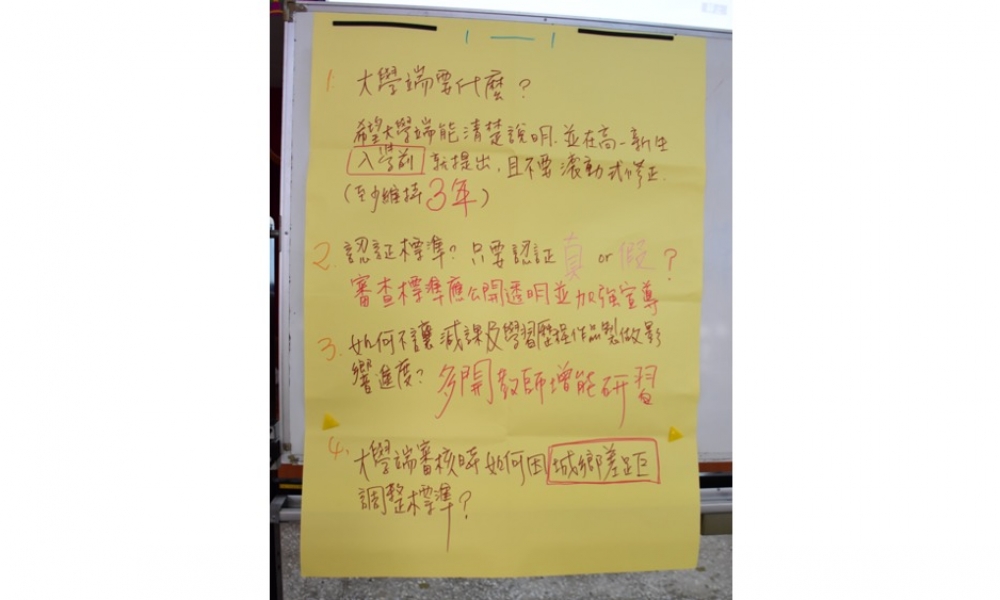 1-1
1. 大學端要什麼?
希望大學端能清楚說明.並在高一新生
入學前 就提出,且不要滾動式修正.
(至少維持3年)
2. 認証標準?只要認証真 or 假?
審查標準應公開透明並加強宣導
3. 如何不讓減課及學習歷程作品製做影
響進度? 多開教師增能研習
4. 大學端審核時如何因城鄉差距
調整標準?